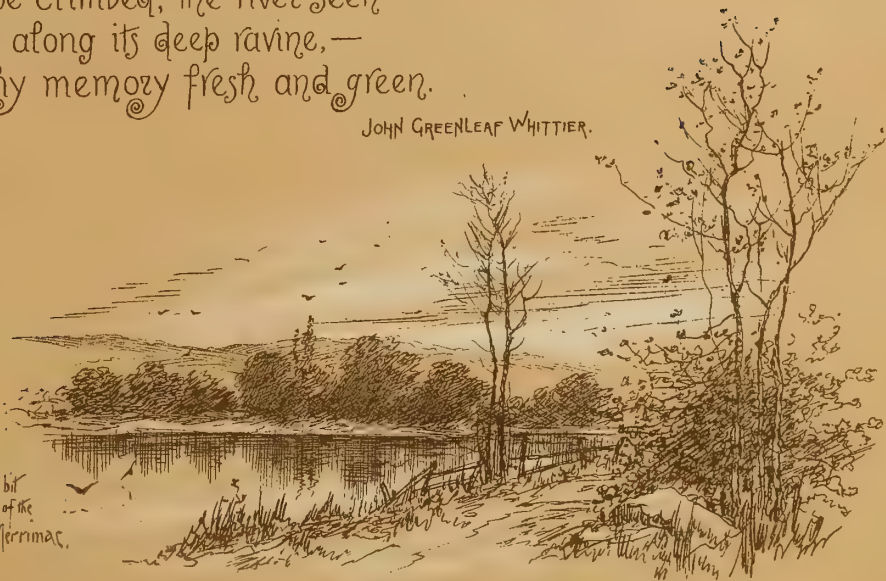 be climbed, the river seen
along its deep ravine,—
memory fresh and green.
JOHN GREENLEAF WHITTIER.
bit
of the
Merrimac.